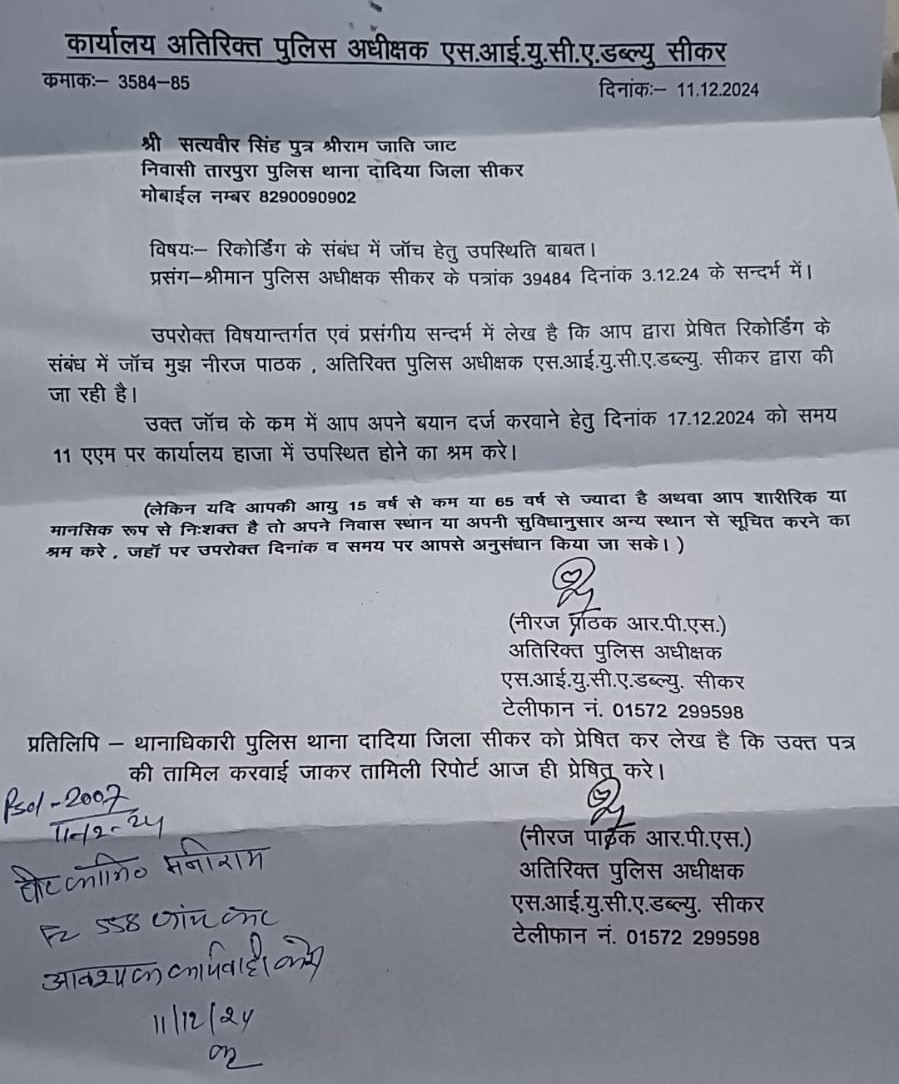 कार्यालय अतिरिक्त पुलिस अधीक्षक एस.आई.यु.सी.ए.डब्ल्यु सीकर
कमाकः– 3584–85 दिनांकः– 11.12.2024
श्री सत्यवीर सिंह पुत्र श्रीराम जाति जाट
निवासी तारपुरा पुलिस थाना दादिया जिला सीकर
मोबाईल नम्बर 8290090902
विषयः– रिकोर्डिंग के संबंध में जॉच हेतु उपस्थिति बाबत।
प्रसंग–श्रीमान पुलिस अधीक्षक सीकर के पत्रांक 39484 दिनांक 3.12.24 के सन्दर्भ में।
उपरोक्त विषयान्तर्गत एवं प्रसंगीय सन्दर्भ में लेख है कि आप द्वारा प्रेषित रिकोर्डिंग के
संबंध में जॉच मुझ नीरज पाठक , अतिरिक्त पुलिस अधीक्षक एस.आई.यु.सी.ए.डब्ल्यु. सीकर द्वारा की
जा रही है।
उक्त जॉच के कम में आप अपने बयान दर्ज करवाने हेतु दिनांक 17.12.2024 को समय
11 एएम पर कार्यालय हाजा में उपस्थित होने का श्रम करे।
(लेकिन यदि आपकी आयु 15 वर्ष से कम या 65 वर्ष से ज्यादा है अथवा आप शारीरिक या
मानसिक रूप से निःशक्त है तो अपने निवास स्थान या अपनी सुविधानुसार अन्य स्थान से सूचित करने का
श्रम करे , जहॉ पर उपरोक्त दिनांक व समय पर आपसे अनुसंधान किया जा सके। )
(नीरज पाठक आर.पी.एस.)
अतिरिक्त पुलिस अधीक्षक
एस.आई.यु.सी.ए.डब्ल्यु. सीकर
टेलीफान नं. 01572 299598
प्रतिलिपि – थानाधिकारी पुलिस थाना दादिया जिला सीकर को प्रेषित कर लेख है कि उक्त पत्र
की तामिल करवाई जाकर तामिली रिपोर्ट आज ही प्रेषित करे।
(नीरज पाठक आर.पी.एस.)
अतिरिक्त पुलिस अधीक्षक
एस.आई.यु.सी.ए.डब्ल्यु. सीकर
टेलीफान नं. 01572 299598
2007
11-12-24
मनीराम
558 जांच कर
आवश्यक कार्यवाही करे
11/12/24